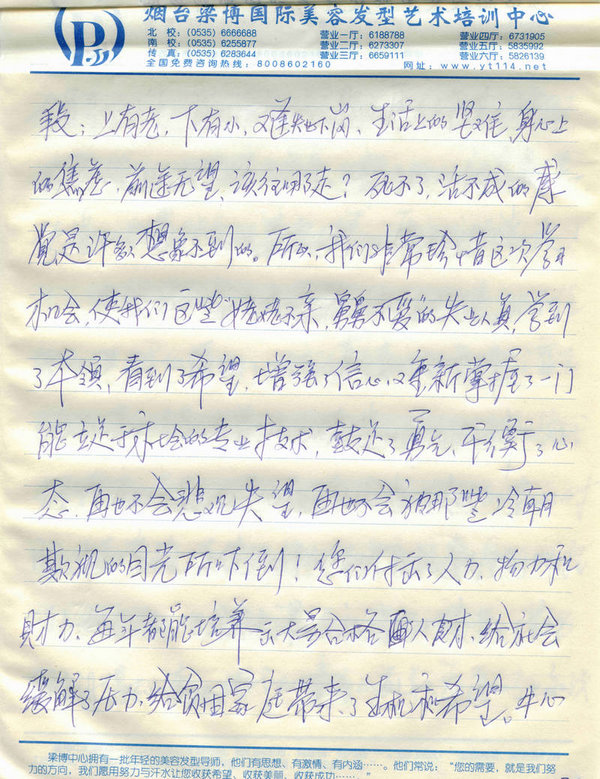 烟台梁博国际美容发型艺术培训中心
北 校: (0535) 6666688 营业一厅: 6188788 营业四厅: 6731905
南 校: (0535) 6255877 营业二厅: 6273307 营业五厅: 5835992
传 真: (0535) 6283644 营业三厅: 6659111 营业六厅: 5826139
全国免费咨询热线: 8008602160 网址: www.yt114.net
段；上有老，下有小，又难处下岗、生活上的坚难，身心上
的焦急，前途无望，该往哪走？死不了，活不成的感
觉是许多想象不到的。所以，我们非常珍惜这次学习
机会，使我们这些"姥姥不亲，舅舅不爱"的失业人员，学到
了本领，看到了希望，增强了信心，又重新掌握了一门
能立足于社会的专业技术，鼓足了勇气，平衡了心
态，再也不会悲观失望，再也不会被那些冷眼
欺视的目光所吓倒！您们付出了人力、物力和
财力，每年都能培养出大量合格人财，给社会
缓解了压力，给贫困家庭带来了生机和希望。中心
梁博中心拥有一批年轻的美容发型导师，他们有思想、有激情、有内涵……。他们常说："您的需要，就是我们努
力的方向，我们愿用努力与汗水让您收获希望、收获美丽，收获成功……。"